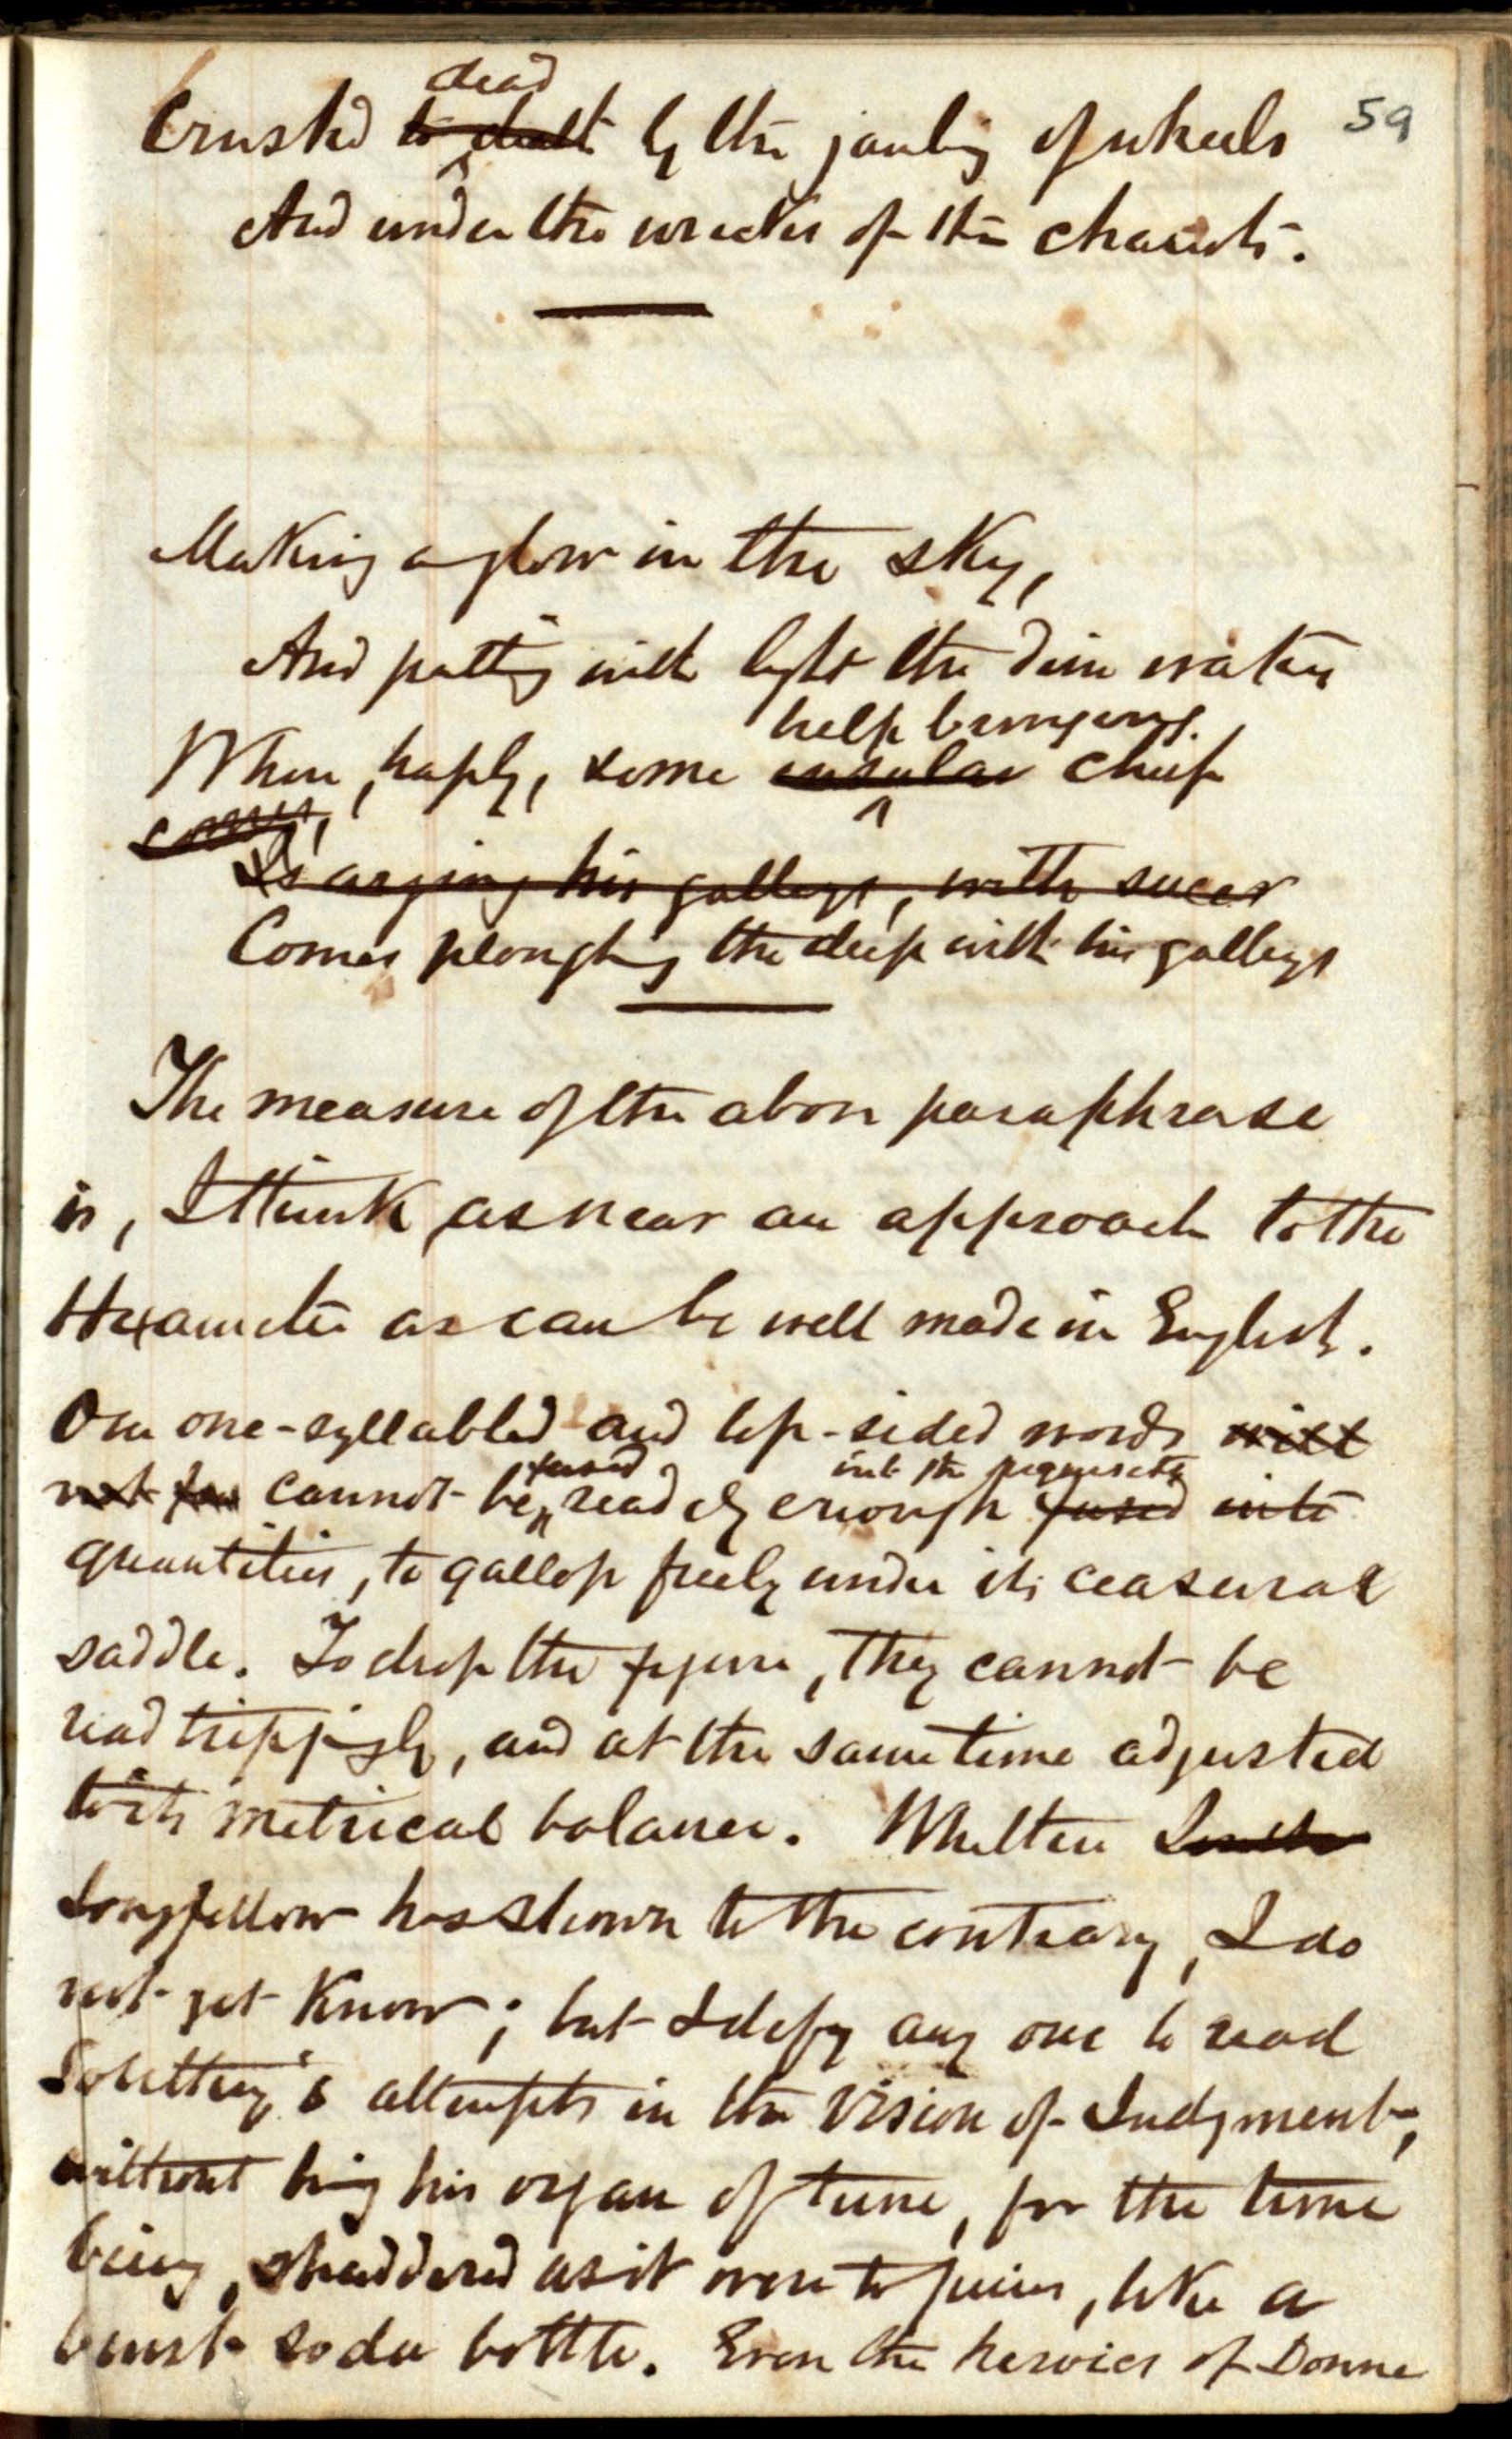 59
dead
Crushed to death by the jambing of wheels
And under the wrecks of the chariots.
Making a glow in the sky,
And patting with light the dim waters
help bringing
When, haply, some insular chief
comes,
Is urging his galleys, with succor
Comes ploughing the deep with his galleys
The measure of the above paraphrase
is, I think as near an approach to the
Hexameter as can be well made in English.
Our one-syllabled and lop-sided words will
fused into the requisite
not fus cannot be readily enough fused into
quantities, to gallop freely under its ceasural
saddle. To drop the figure, they cannot be
read trippingly, and at the same time adjusted
to its metrical balance. Whether
Longfellow has shown to the contrary, I do
not yet know; but I defy any one to read
Southey's attempts in the Vision of Judgment,
without his organ of tune, for the time
being, shuddered as it were to pieces, like a
burst soda bottle. Even the heroics of Donne